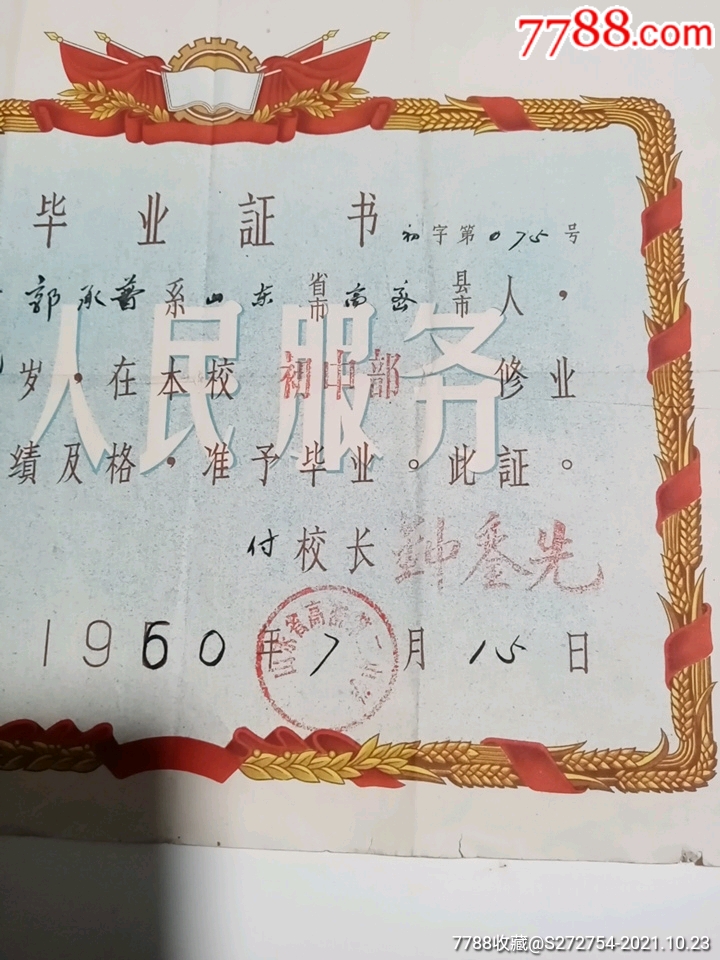 7788.com
毕业証书
初字第075号
郭承普系山东省市高密县市人，
人民服务
岁，在本校初中部修业
績及格，准予毕业。此証。
付校长
1960年7月15日
山东省高密第二中学
7788收藏@S272754-2021.10.23